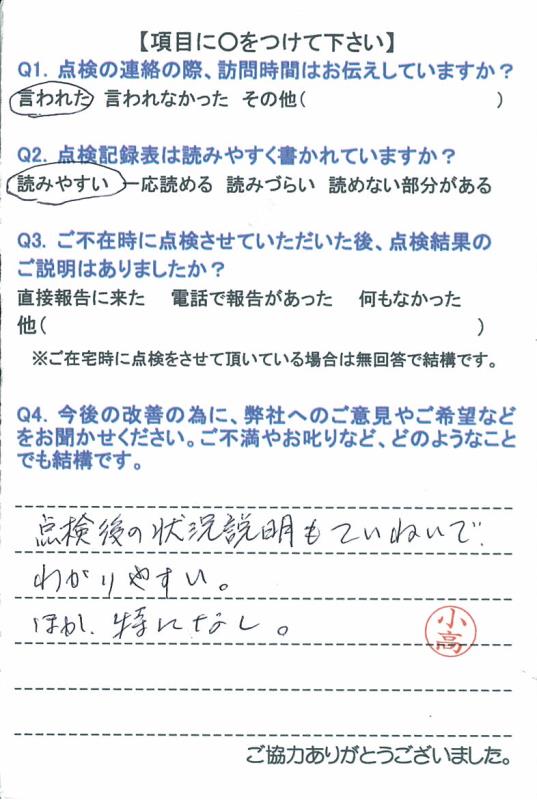 【項目に○をつけて下さい】
Q1. 点検の連絡の際、訪問時間はお伝えしていますか？
言われた 言われなかった その他( )
Q2. 点検記録表は読みやすく書かれていますか？
読みやすい 一応読める 読みづらい 読めない部分がある
Q3. ご不在時に点検させていただいた後、点検結果の
ご説明はありましたか？
直接報告に来た 電話で報告があった 何もなかった
他( )
※ご在宅時に点検をさせて頂いている場合は無回答で結構です。
Q4. 今後の改善の為に、弊社へのご意見やご希望など
をお聞かせください。ご不満やお叱りなど、どのようなこと
でも結構です。
点検後の状況説明もていねいで、
わかりやすい。
ほか、特になし。
小高
ご協力ありがとうございました。